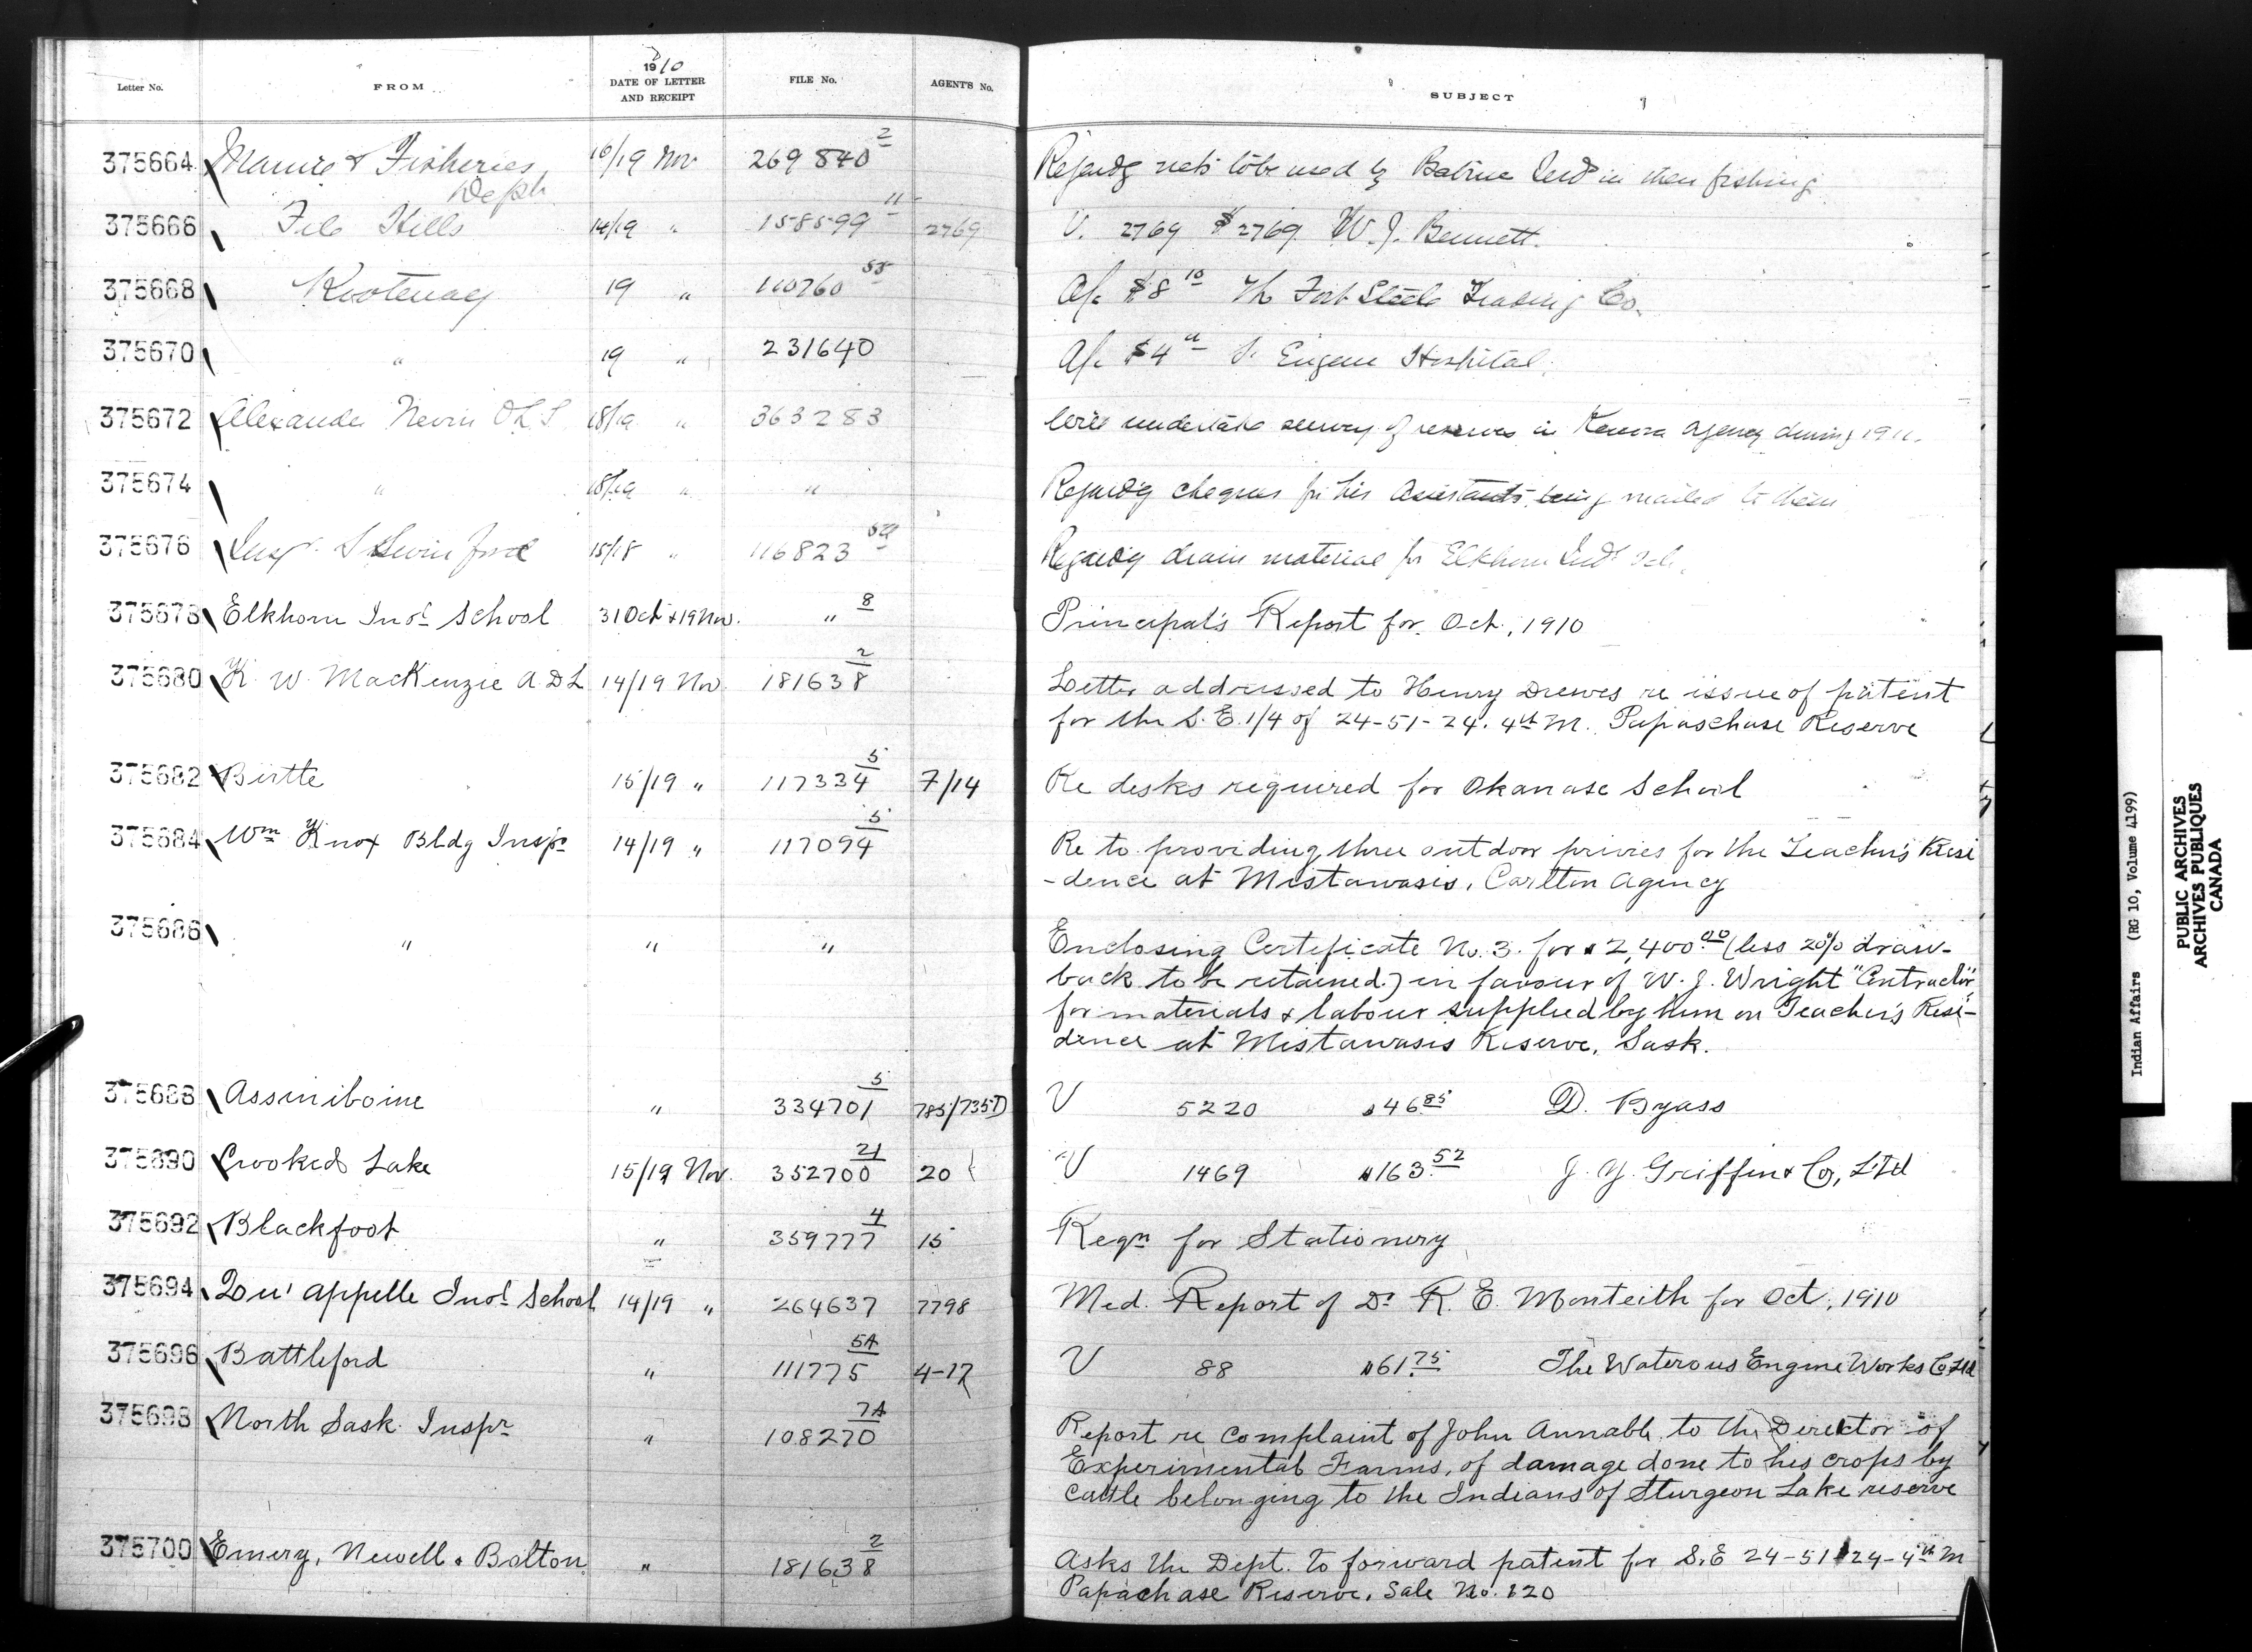 Letter No. FROM 1910 DATE OF LETTER AND RECEIPT FILE No. AGENTS No. SUBJECT
375664 Marine & Fisheries Dept. 16/19 Nov 269840 2 Regardg nets to be used by Babine Inds in their fishing
375666 File Hills 14/19 " 158599 11 2769 V. 2769 $27.69 W. J. Bennett.
375668 Kootenay 19 " 110760 A/c $8 10 The Fort Steele Trading Co.
375670 " 19 " 231640 A/c $4 St. Eugene Hospital
375672 Alexander Nevin O L S 18/19 " 363283 undertake survey of reserves in Kenora Agency during 1911.
375674 " 18/19 " " Regard'g cheques for his Assistants being mailed to them
375676 Insp. S Swinford 15/18 " 116823 Regard'g drain material for Elkhorn Indl Sch.
375678 Elkhorn Indl School 31 Oct & 19 Nov. " 8 Principal's Report for Oct., 1910
375680 K. W. MacKenzie A D L 14/19 Nov 181638 2 Letter addressed to Henry Drewes re issue of patent
for the S. E. 1/4 of 24-51-24. 4th M. Papaschase Reserve
375682 Birtle 15/19 " 117334 5 7/14 Re desks required for Okanase School
375684 Wm Knox Bldg Inspr 14/19 " 117094 5 Re to providing three outdoor privies for the Teacher's Resi
-dence at Mistawasis, Carlton Agency
375686 " " " Enclosing Certificate No. 3. for $2,400.00 (less 20% draw-
back to be retained.) in favour of W. J. Wright "Contractor"
for materials & labour supplied by him on Teacher's Resi-
dence at Mistawasis Reserve, Sask.
375688 Assiniboine " 334701 5 785/735D V 5220 $46.85 D. Byass
375690 Crooked Lake 15/19 Nov. 352700 21 20 V 1469 $163.52 J. Y. Griffin & Co, Ltd
375692 Blackfoot " 359777 4 15 Reqn for Stationery
375694 Qu'Appelle Indl School 14/19 " 264637 7798 Med. Report of Dr R. E. Monteith for Oct, 1910
375696 Battleford " 111775 5A 4-17 V 88 $61.75 The Waterous Engine Works Co Ltd
375698 North Sask. Inspr " 108270 7A Report re complaint of John Annable to the Director of
Experimental Farms, of damage done to his crops by
cattle belonging to the Indians of Sturgeon Lake reserve
375700 Emery, Newell & Bolton " 181638 2 Asks the Dept. to forward patent for S. E 24-51-24-4th M
Papachase Reserve, Sale No. 120
Indian Affairs (RG 10, Volume 4199)
PUBLIC ARCHIVES
ARCHIVES PUBLIQUES
CANADA